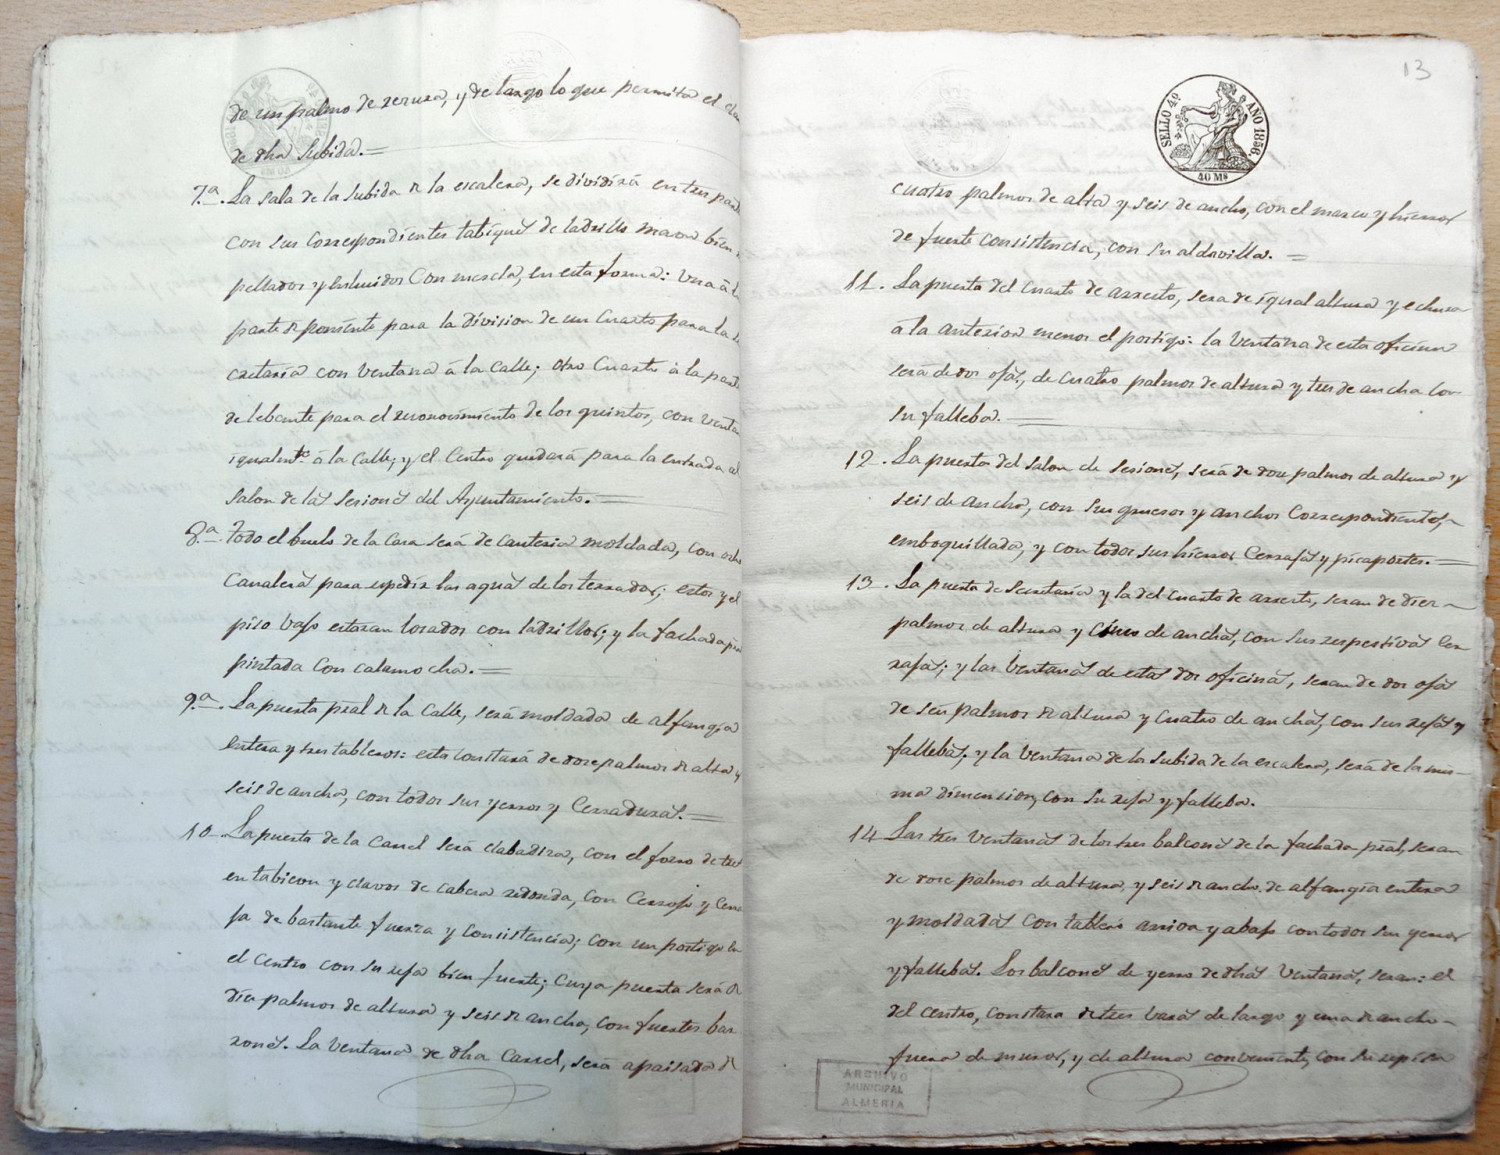 de un palmo de zeruza, y de largo lo que permita el cla
de dha subida.=
7.ª La sala de la subida de la escalera, se dividirá en tres par
con sus correspondientes tabiques de ladrillo mazon bien
pellados y enlucidos con mezcla, en esta forma: una á l
parte de poniente para la division de un cuarto para la
cretaria con ventana á la calle; otro cuarto á la part
de lebante para el reconocimiento de los quintos, con venta
igualmte. á la calle; y el centro quedará para la entrada al
salon de las sesiones del Ayuntamiento.=
8.ª Todo el buelo de la casa será de canteria moldada, con ocho
canaleras para espedir las aguas de los terrados; estos y el
piso bajo estaran losados con ladrillos; y la fachada
pintada con calamocha.=
9.ª La puerta pral de la calle, será moldada de alfangia
entera y tres tableros: esta constará de doce palmos de alta y
seis de ancha, con todos sus yerros y cerraduras.=
10 La puerta de la Carcel será clabadiza, con el forro de tres
en tabicon y clavos de cabeza redonda, con cerrojo y cerra
ja de bastante fuerza y consistencia; con un postigo en
el centro con su reja bien fuerte; cuya puerta será de
diez palmos de altura y seis de ancha, con fuertes bar
zones. La ventana de dha Carcel, será apaisada de
13
SELLO 4º AÑO 1856.
40 Ms
cuatro palmos de alta y seis de ancho, con el marco y hierros
de fuerte consistencia, con su aldavilla.=
11. La puerta del cuarto de arresto, será de igual altura y echura
á la anterior menos el postigo: la ventana de esta oficina
será de dos ojas, de cuatro palmos de altura y tres de ancha con
su falleba.=
12. La puerta del salon de sesiones, será de doce palmos de altura y
seis de ancha, con sus gruesos y anchos correspondientes,
emboquillada, y con todos sus hierros cerrajas y picaportes.=
13. La puerta de Secretaría y la del cuarto de arresto, seran de diez
palmos de altura y cinco de anchas, con sus respectivas cer-
rajas; y las ventanas de estas dos oficinas, seran de dos ojas
de seis palmos de altura y cuatro de anchas, con sus rejas y
fallebas. y la ventana de la subida de la escalera, será de la mis-
ma dimension, con su reja y falleba.
14 Las tres ventanas de los tres balcones de la fachada pral, seran
de doce palmos de altura, y seis de ancho de alfangia entera
y moldadas con tablero arriva y abajo con todos sus yerros
y fallebas. Los balcones de yerro de dhas ventanas, seran: el
del centro, constara de tres varas de largo y una de ancho
fuera de muros, y de altura conveniente, con su repisa
ARCHIVO
MUNICIPAL
ALMERIA